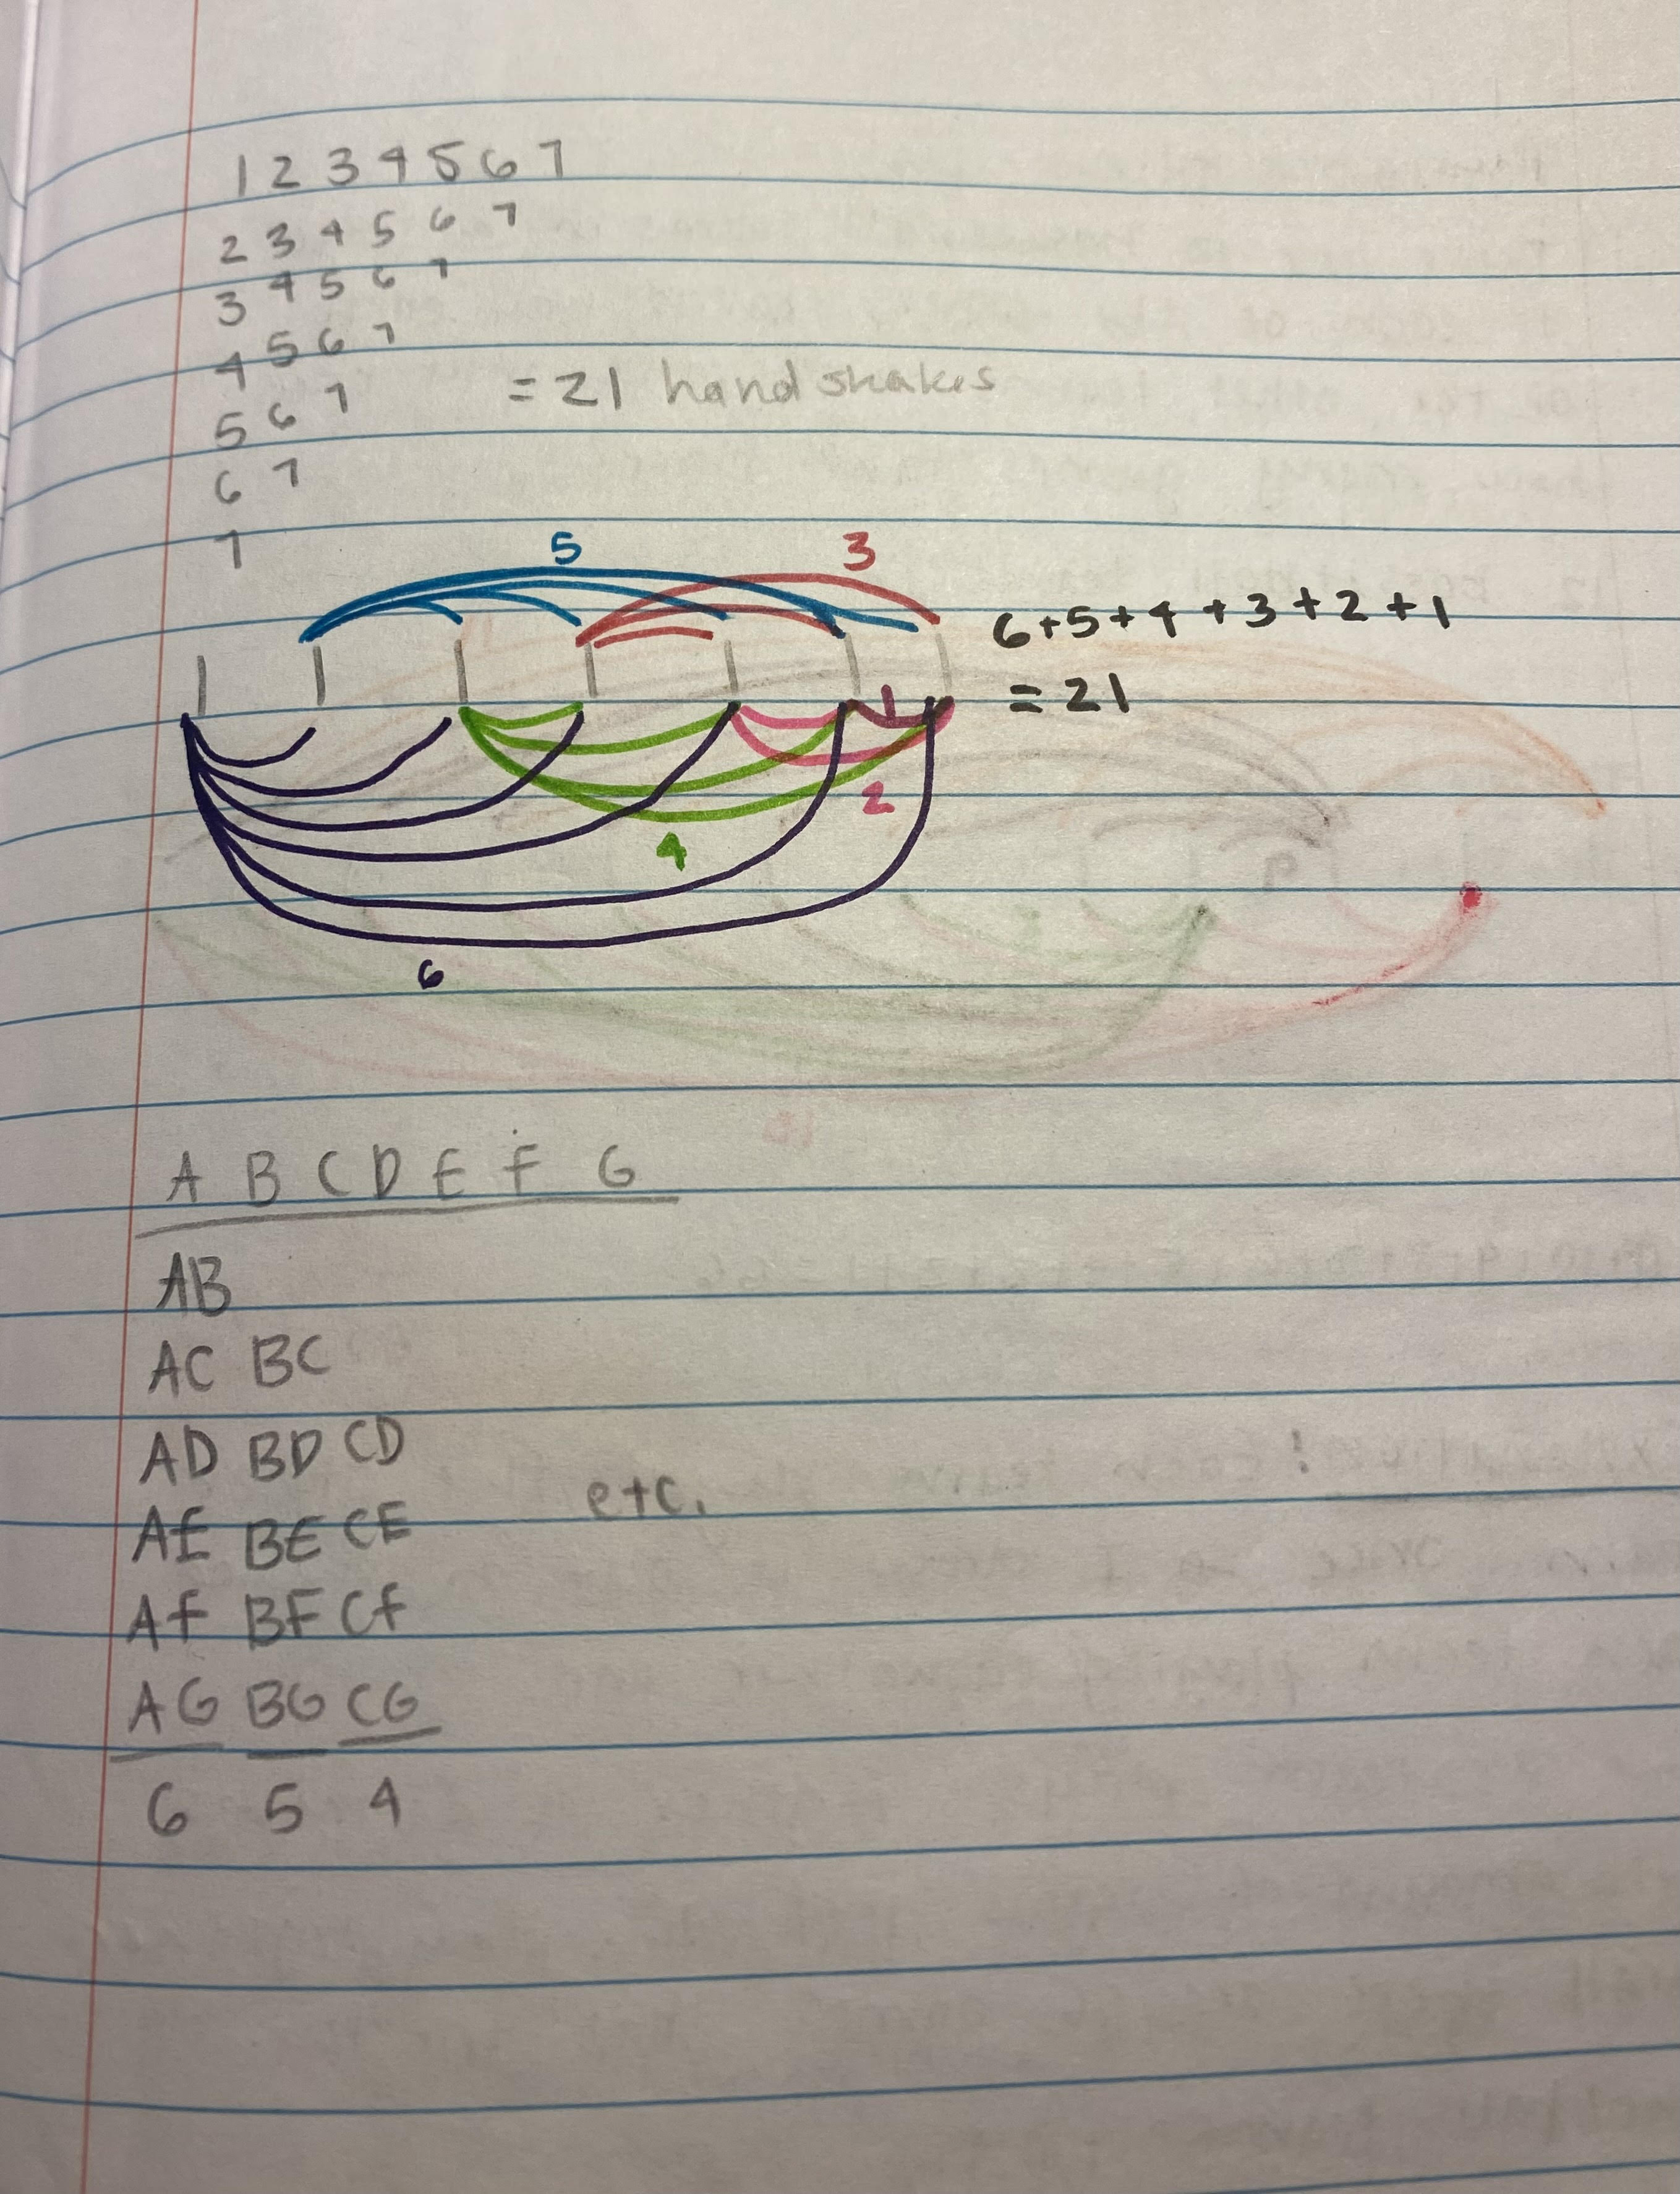 1 2 3 4 5 6 7
2 3 4 5 6 7
3 4 5 6 7
4 5 6 7
= 21 handshakes
5 6 7
6 7
7
5
3
6+5+4+3+2+1
= 21
1
2
4
6
A B C D E F G
AB
AC BC
AD BD CD
AE BE CE
etc.
AF BF CF
AG BG CG
6 5 4